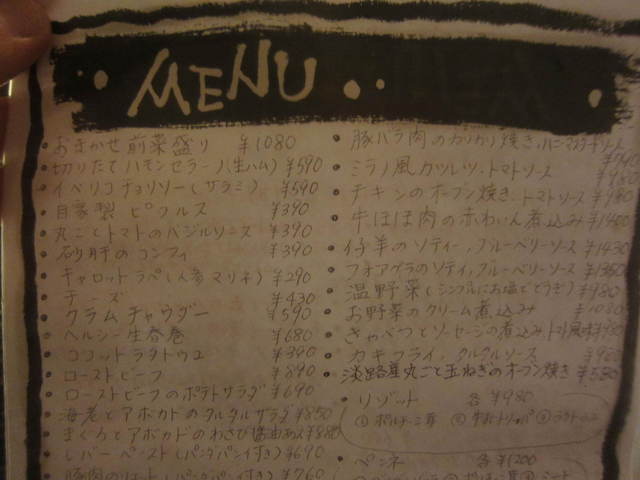 MENU
・おまかせ前菜盛り ¥1080
・切りたてハモンセラーノ(生ハム) ¥590
・イベリコチョリソー(サラミ) ¥590
・自家製ピクルス ¥390
・丸ごとトマトのバジルソース ¥390
・砂肝のコンフィ ¥390
・キャロットラペ(人参マリネ) ¥290
・チーズ ¥430
・クラムチャウダー ¥590
・ヘルシー生春巻 ¥680
・ココットラタトゥユ ¥390
・ローストビーフ ¥890
・ローストビーフのポテトサラダ ¥690
・海老とアボカドのタルタルサラダ ¥850
・まぐろとアボカドのわさび醤油あえ ¥880
・レバーペースト(パンダパン付き) ¥690
・豚肉のリエット(パンダパン付き) ¥760
・豚バラ肉のカリカリ焼き,ハニーマスタードソース
・ミラノ風カツレツ,トマトソース ¥980
・チキンのオーブン焼き,トマトソース ¥980
・牛ほほ肉の赤わいん煮込み ¥1400
・仔羊のソティー,ブルーベリーソース ¥1430
・フォアグラのソティ,ブルーベリーソース
・温野菜(シンプルにお塩でどうぞ) ¥980
・お野菜のクリーム煮込み ¥1080
・きゃべつとソーセージの煮込み,トマト風味
・カキフライ,タルタルソース
・淡路産丸ごと玉ねぎのオーブン焼き ¥580
・リゾット 各¥980
・ペンネ 各¥1200